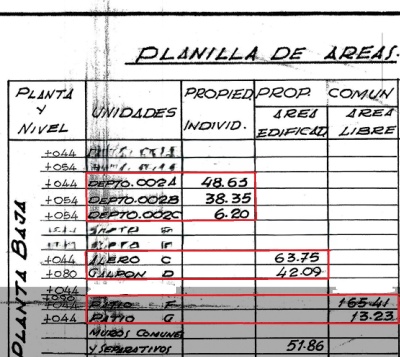 PLANILLA DE AREAS.
PLANTA Y NIVEL UNIDADES PROPIED. INDIVID. PROP. COMUN
AREA EDIFICAD. AREA LIBRE
PLANTA BAJA
+044
+054
+044 DEPTO.002A 48.63
+054 DEPTO.002B 38.35
+054 DEPTO.002C 6.20
+044 ALERO C 63.75
+080 GALPON D 42.09
+044
+044 PATIO F 165.41
+044 PATIO G 13.23
MUROS COMUNES
Y SEPARATIVOS 51.86